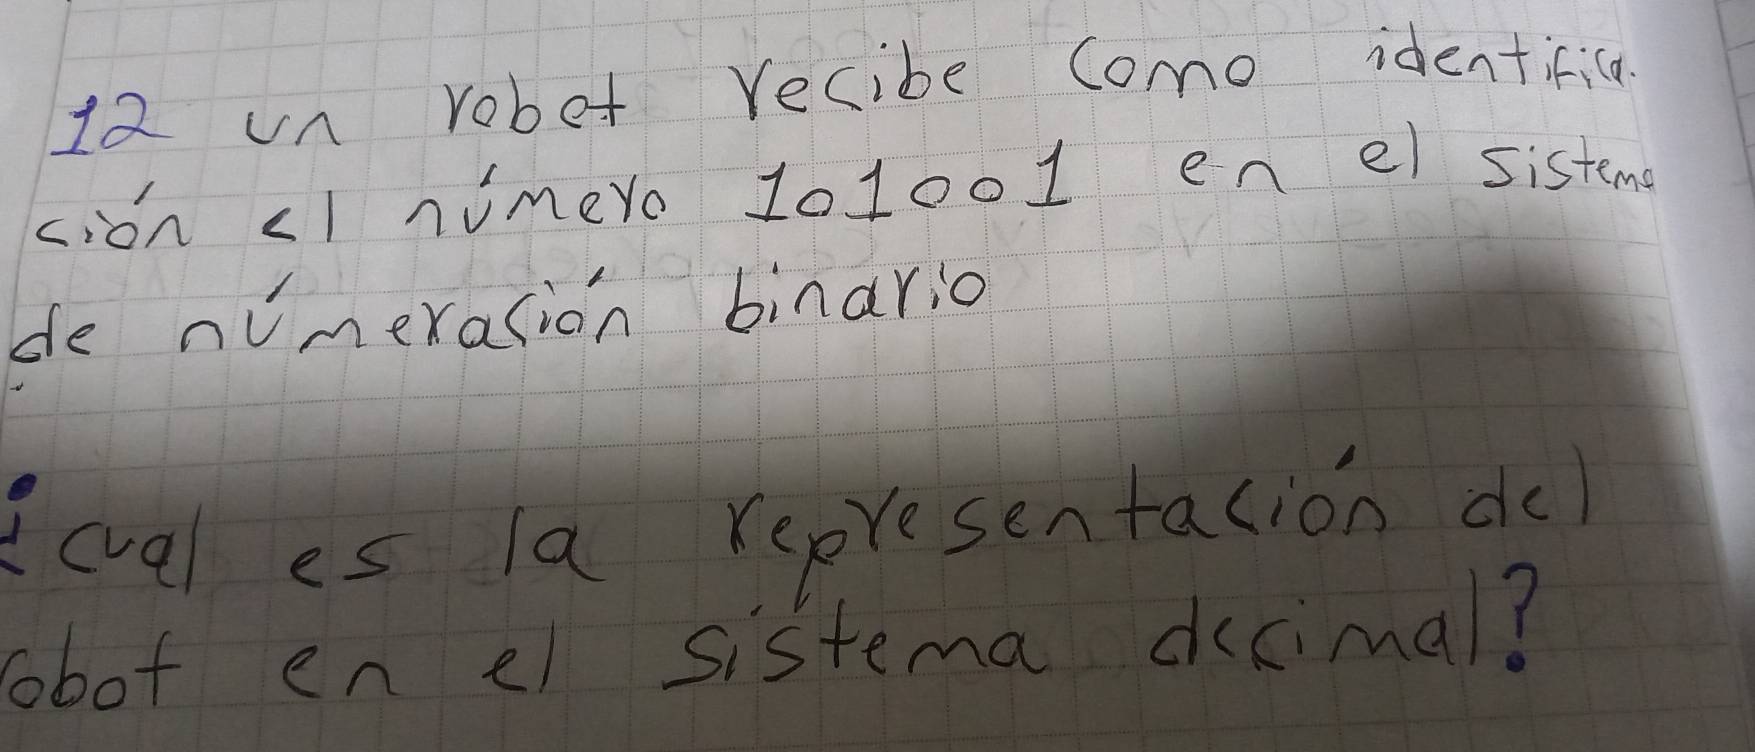 12 un robot recibe como identifica.
ción el número 101001 en el sistema
de númeración binario
¿cual es la representación del
robot en el sistema decimal?